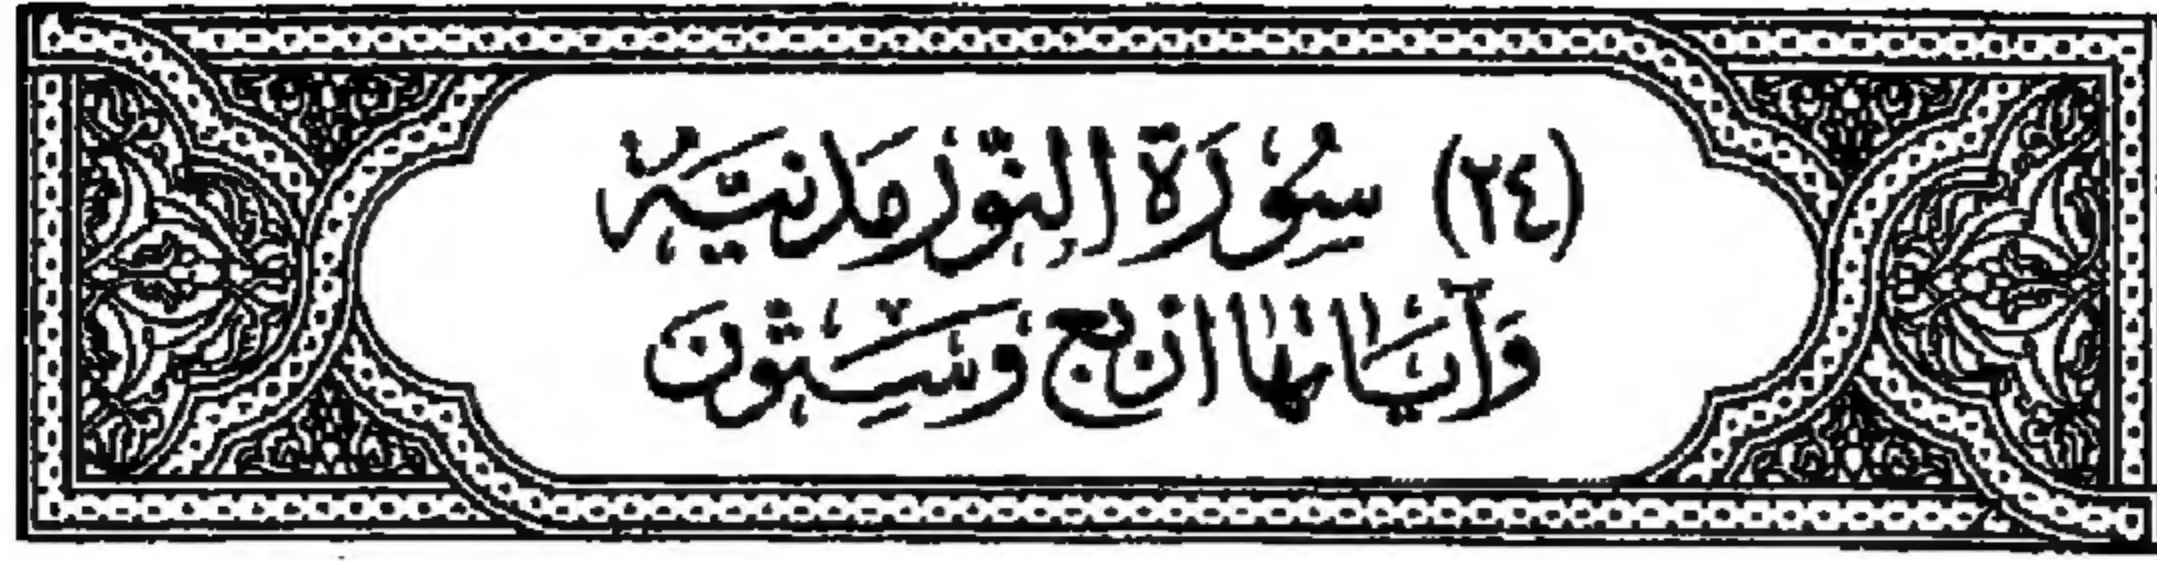 (٢٤) سُوْرَةِ النُّوْرِ مَدَنِيَّةٌ
وَآيَاتُهَا أَرْبَعٌ وَسِتُّوْنَ